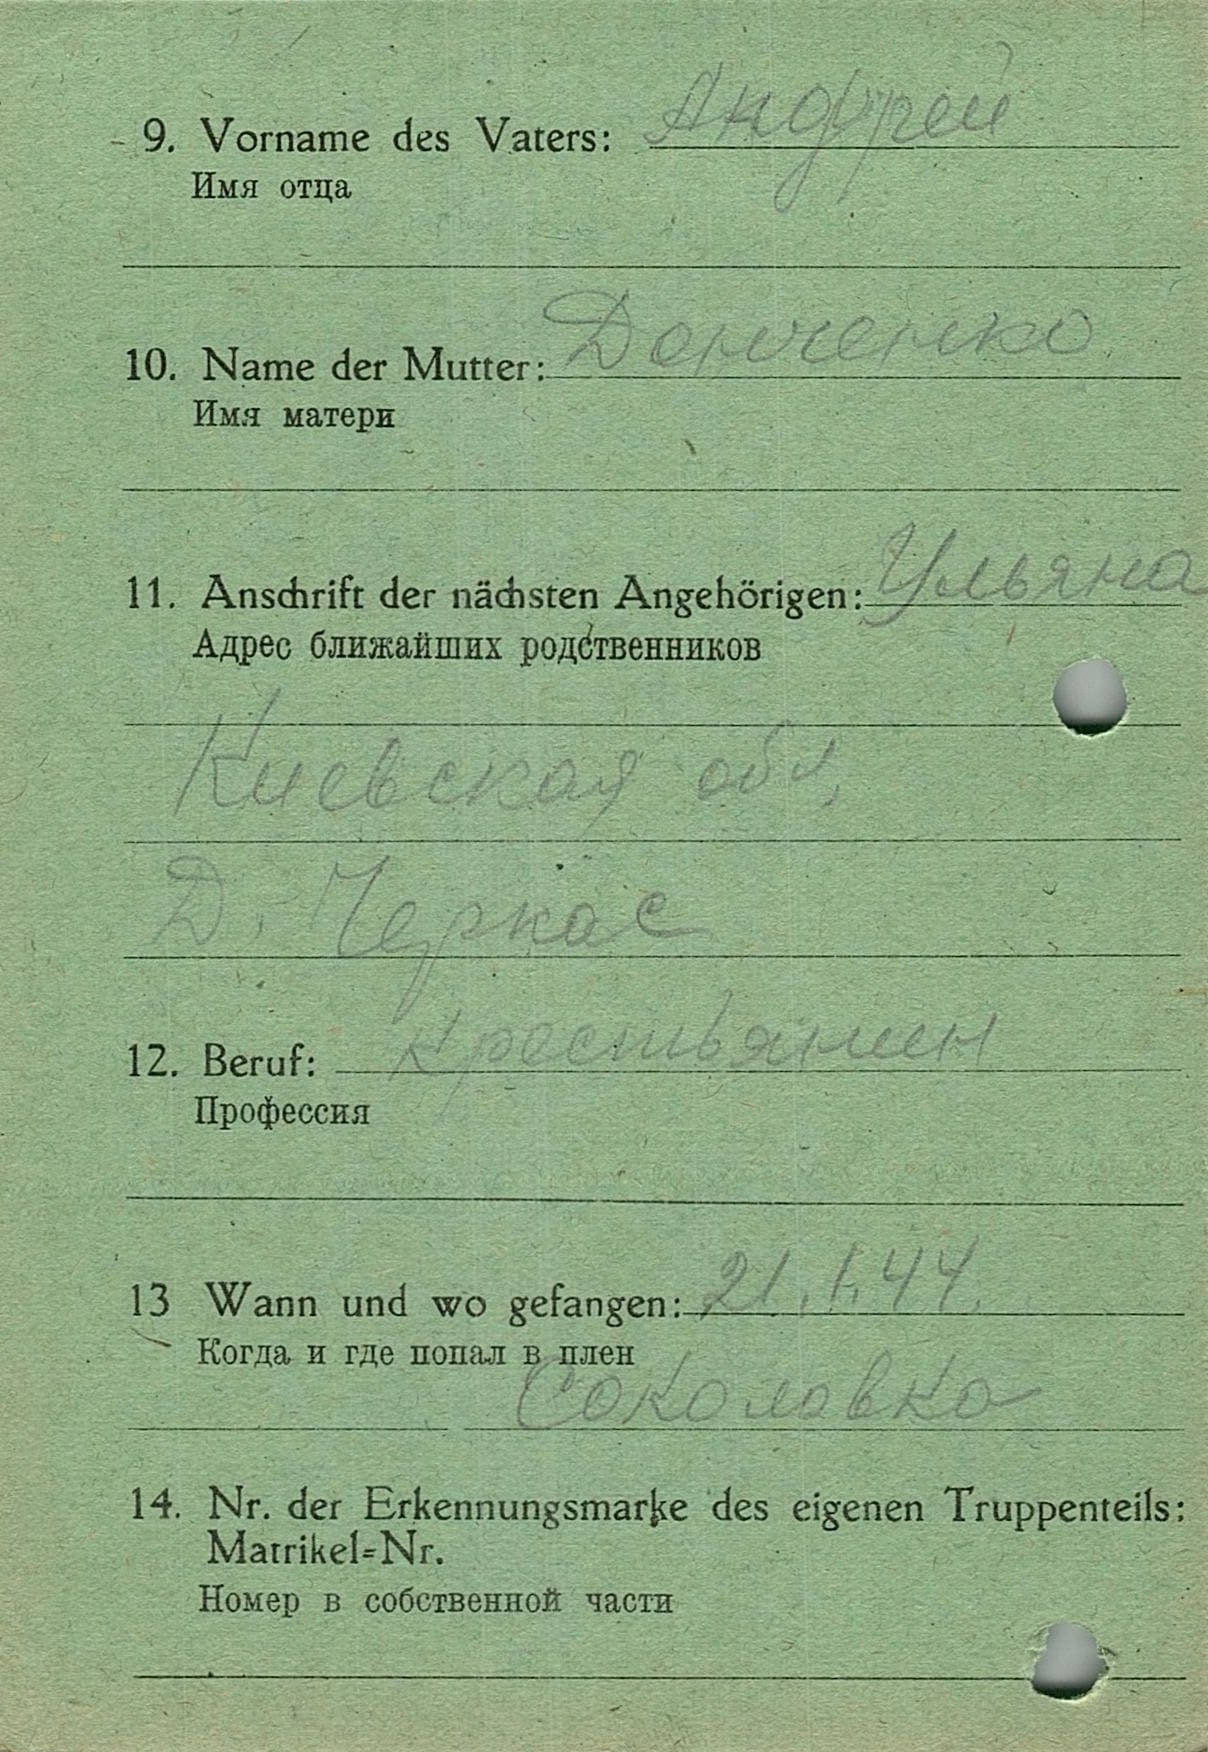 9. Vorname des Vaters: Андрей
Имя отца
10. Name der Mutter: Донченко
Имя матери
11. Anschrift der nächsten Angehörigen: Ульяна
Адрес ближайших родственников
Киевская обл,
Д. Черкас
12. Beruf: крестьянин
Профессия
13 Wann und wo gefangen: 21.1.44.
Когда и где попал в плен
Соколовка
14. Nr. der Erkennungsmarke des eigenen Truppenteils:
Matrikel=Nr.
Номер в собственной части